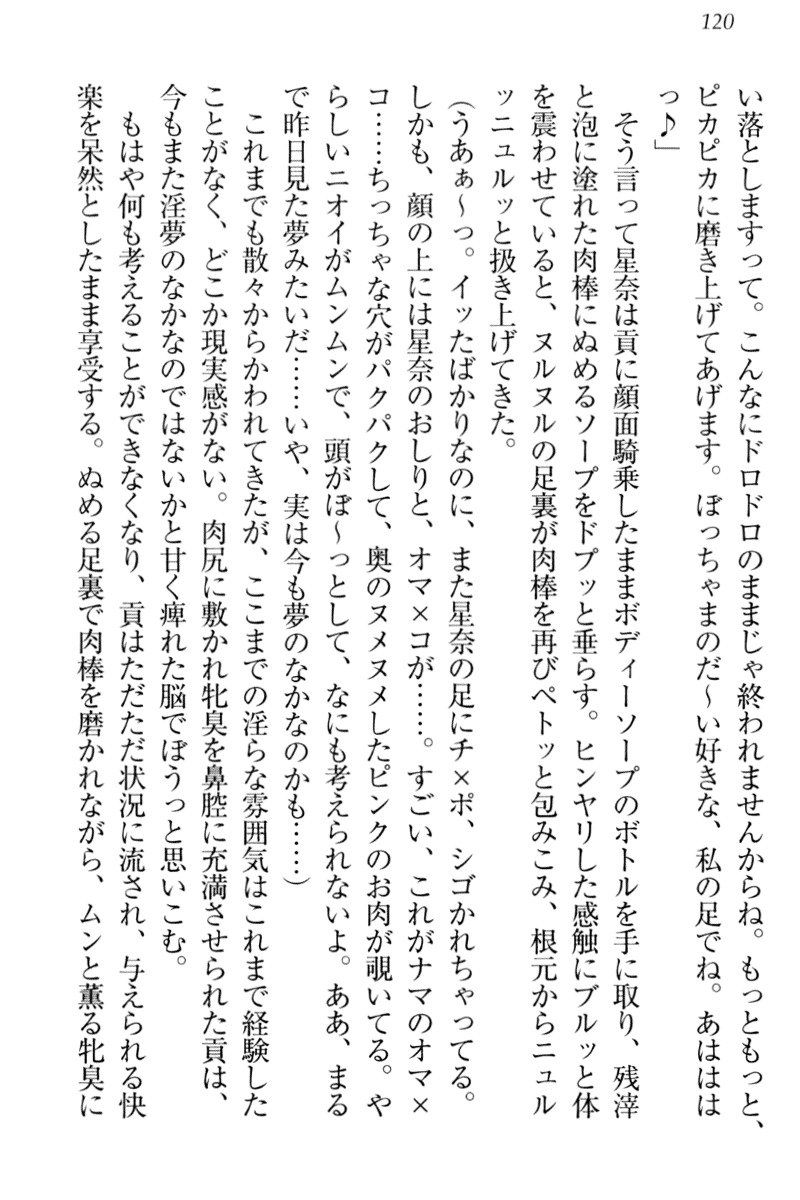 120
い落としますって。こんなにドロドロのままじゃ終われませんからね。もっともっと、
ピカピカに磨き上げてあげます。ぼっちゃまのだ〜い好きな、私の足でね。あははは
っ♪」
　そう言って星奈は貢に顔面騎乗したままボディーソープのボトルを手に取り、残滓
と泡に塗れた肉棒にぬめるソープをドプッと垂らす。ヒンヤリした感触にブルッと体
を震わせていると、ヌルヌルの足裏が肉棒を再びペトッと包みこみ、根元からニュル
ッニュルッと扱き上げてきた。
（うあぁ〜っ。イッたばかりなのに、また星奈の足にチ×ポ、シゴかれちゃってる。
しかも、顔の上には星奈のおしりと、オマ×コが……。すごい、これがナマのオマ×
コ……ちっちゃな穴がパクパクして、奥のヌメヌメしたピンクのお肉が覗いてる。や
らしいニオイがムンムンで、頭がぼ〜っとして、なにも考えられないよ。ああ、まる
で昨日見た夢みたいだ……いや、実は今も夢のなかなのかも……）
　これまでも散々からかわれてきたが、ここまでの淫らな雰囲気はこれまで経験した
ことがなく、どこか現実感がない。肉尻に敷かれ牝臭を鼻腔に充満させられた貢は、
今もまた淫夢のなかなのではないかと甘く痺れた脳でぼうっと思いこむ。
　もはや何も考えることができなくなり、貢はただただ状況に流され、与えられる快
楽を呆然としたまま享受する。ぬめる足裏で肉棒を磨かれながら、ムンと薫る牝臭に